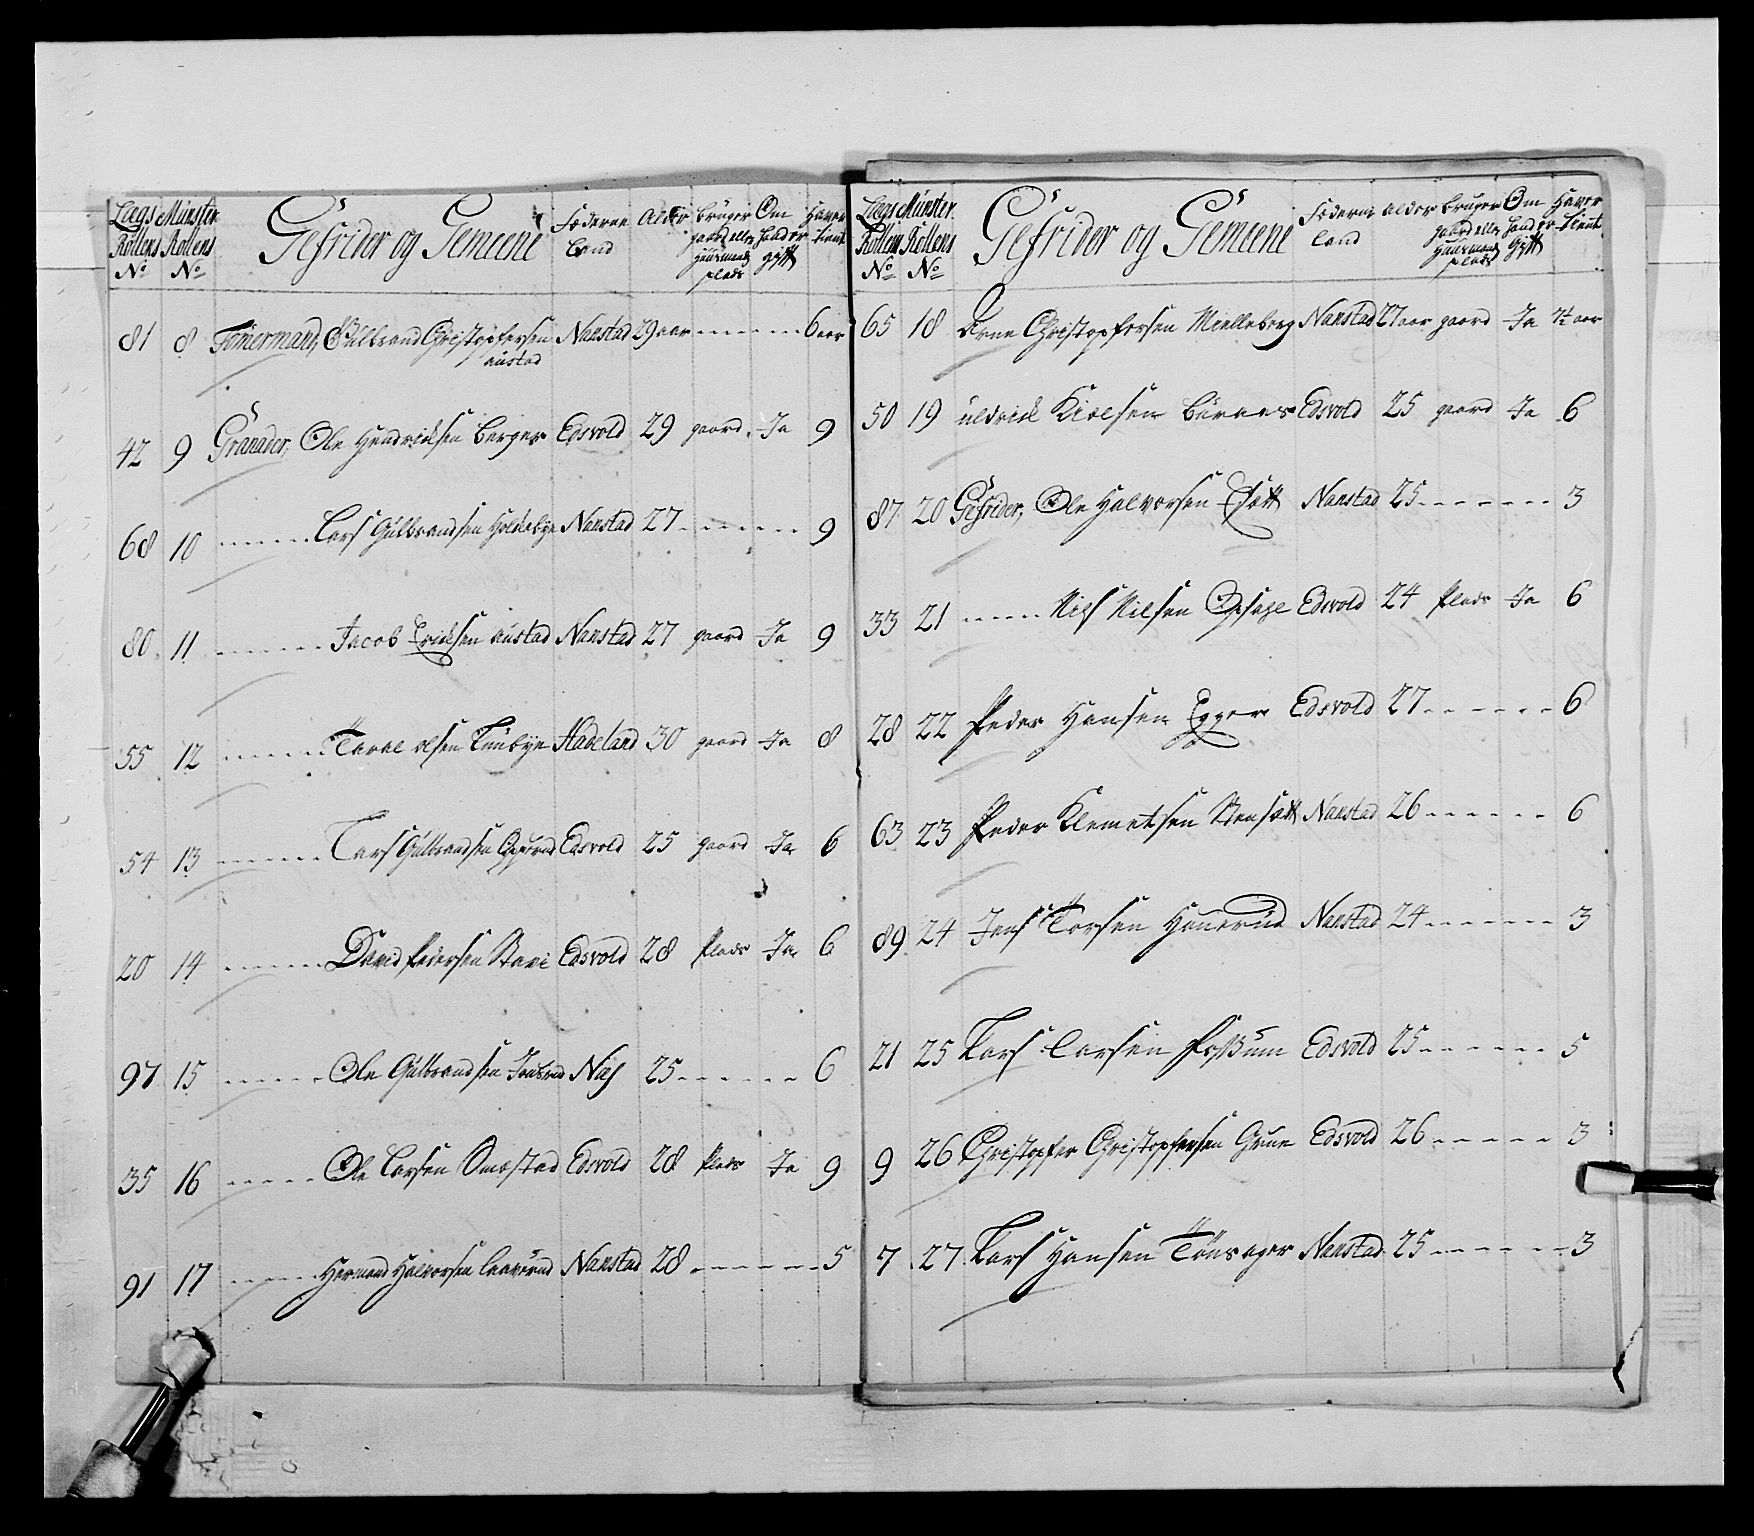 Lægs Rollens No | Münster Rollens No | Gefrider og Gemeene | Føderne Land | Alder | bruger gaard eller Huusmands plads | Om hand er Gift | Haver tient
81 8 Tømermand, Gulbrand Christophersen Nanstad 29 aar - - - - - - 6 aar
austad
42 9 Granader, Ole Hendrichsen berger Edsvold 29 gaard Ja 9
68 10 - - - - Lars Gulbrandsen Holdebye Nanstad 27 - - - - - 9
80 11 - - - - Jacob Erichsen austad Nanstad 27 gaard Ja 9
55 12 - - - - olsen Hadeland 30 gaard Ja 8
54 13 - - - - Lars Gulbrandsen Edsvold 25 gaard Ja 6
20 14 - - - - David Pedersen Edsvold 28 Plads Ja 6
97 15 - - - - Ole Gulbrandsen Næs 25 - - - - - - 6
35 16 - - - - Ole Larsen Smestad Edsvold 28 Plads Ja 9
91 17 - - - - Hermand Halvorsen Nanstad 28 - - - - - - 5
Lægs Rollens No | Münster Rollens No | Gefrider og Gemeene | Føderne Land | Alder | bruger gaard eller Huusmands plads | Om hand er Gift | Haver tient
65 18 Arne Christophersen Mielleberg Nanstad 27 aar gaard Ja aar
50 19 Edsvold 25 gaard Ja 6
87 20 Gefrider, Ole Halvorsen Nanstad 25 - - - - - - - 3
33 21 - - - - Nils Nilsen Opsage Edsvold 24 Plads Ja 6
28 22 Peder Hansen Egger Edsvold 27 - - - - - - 6
63 23 Peder Klemetsen Nanstad 26 - - - - - - 6
89 24 Jens Torsen Hauerud Nanstad 24 - - - - - - 3
21 25 Lars Larsen Fossum Edsvold 25 - - - - - - 5
9 26 Christopfer Christophersen Grue Edsvold 26 - - - - - 3
7 27 Lars Hansen Tønsager Nanstad 25 - - - - - - 3